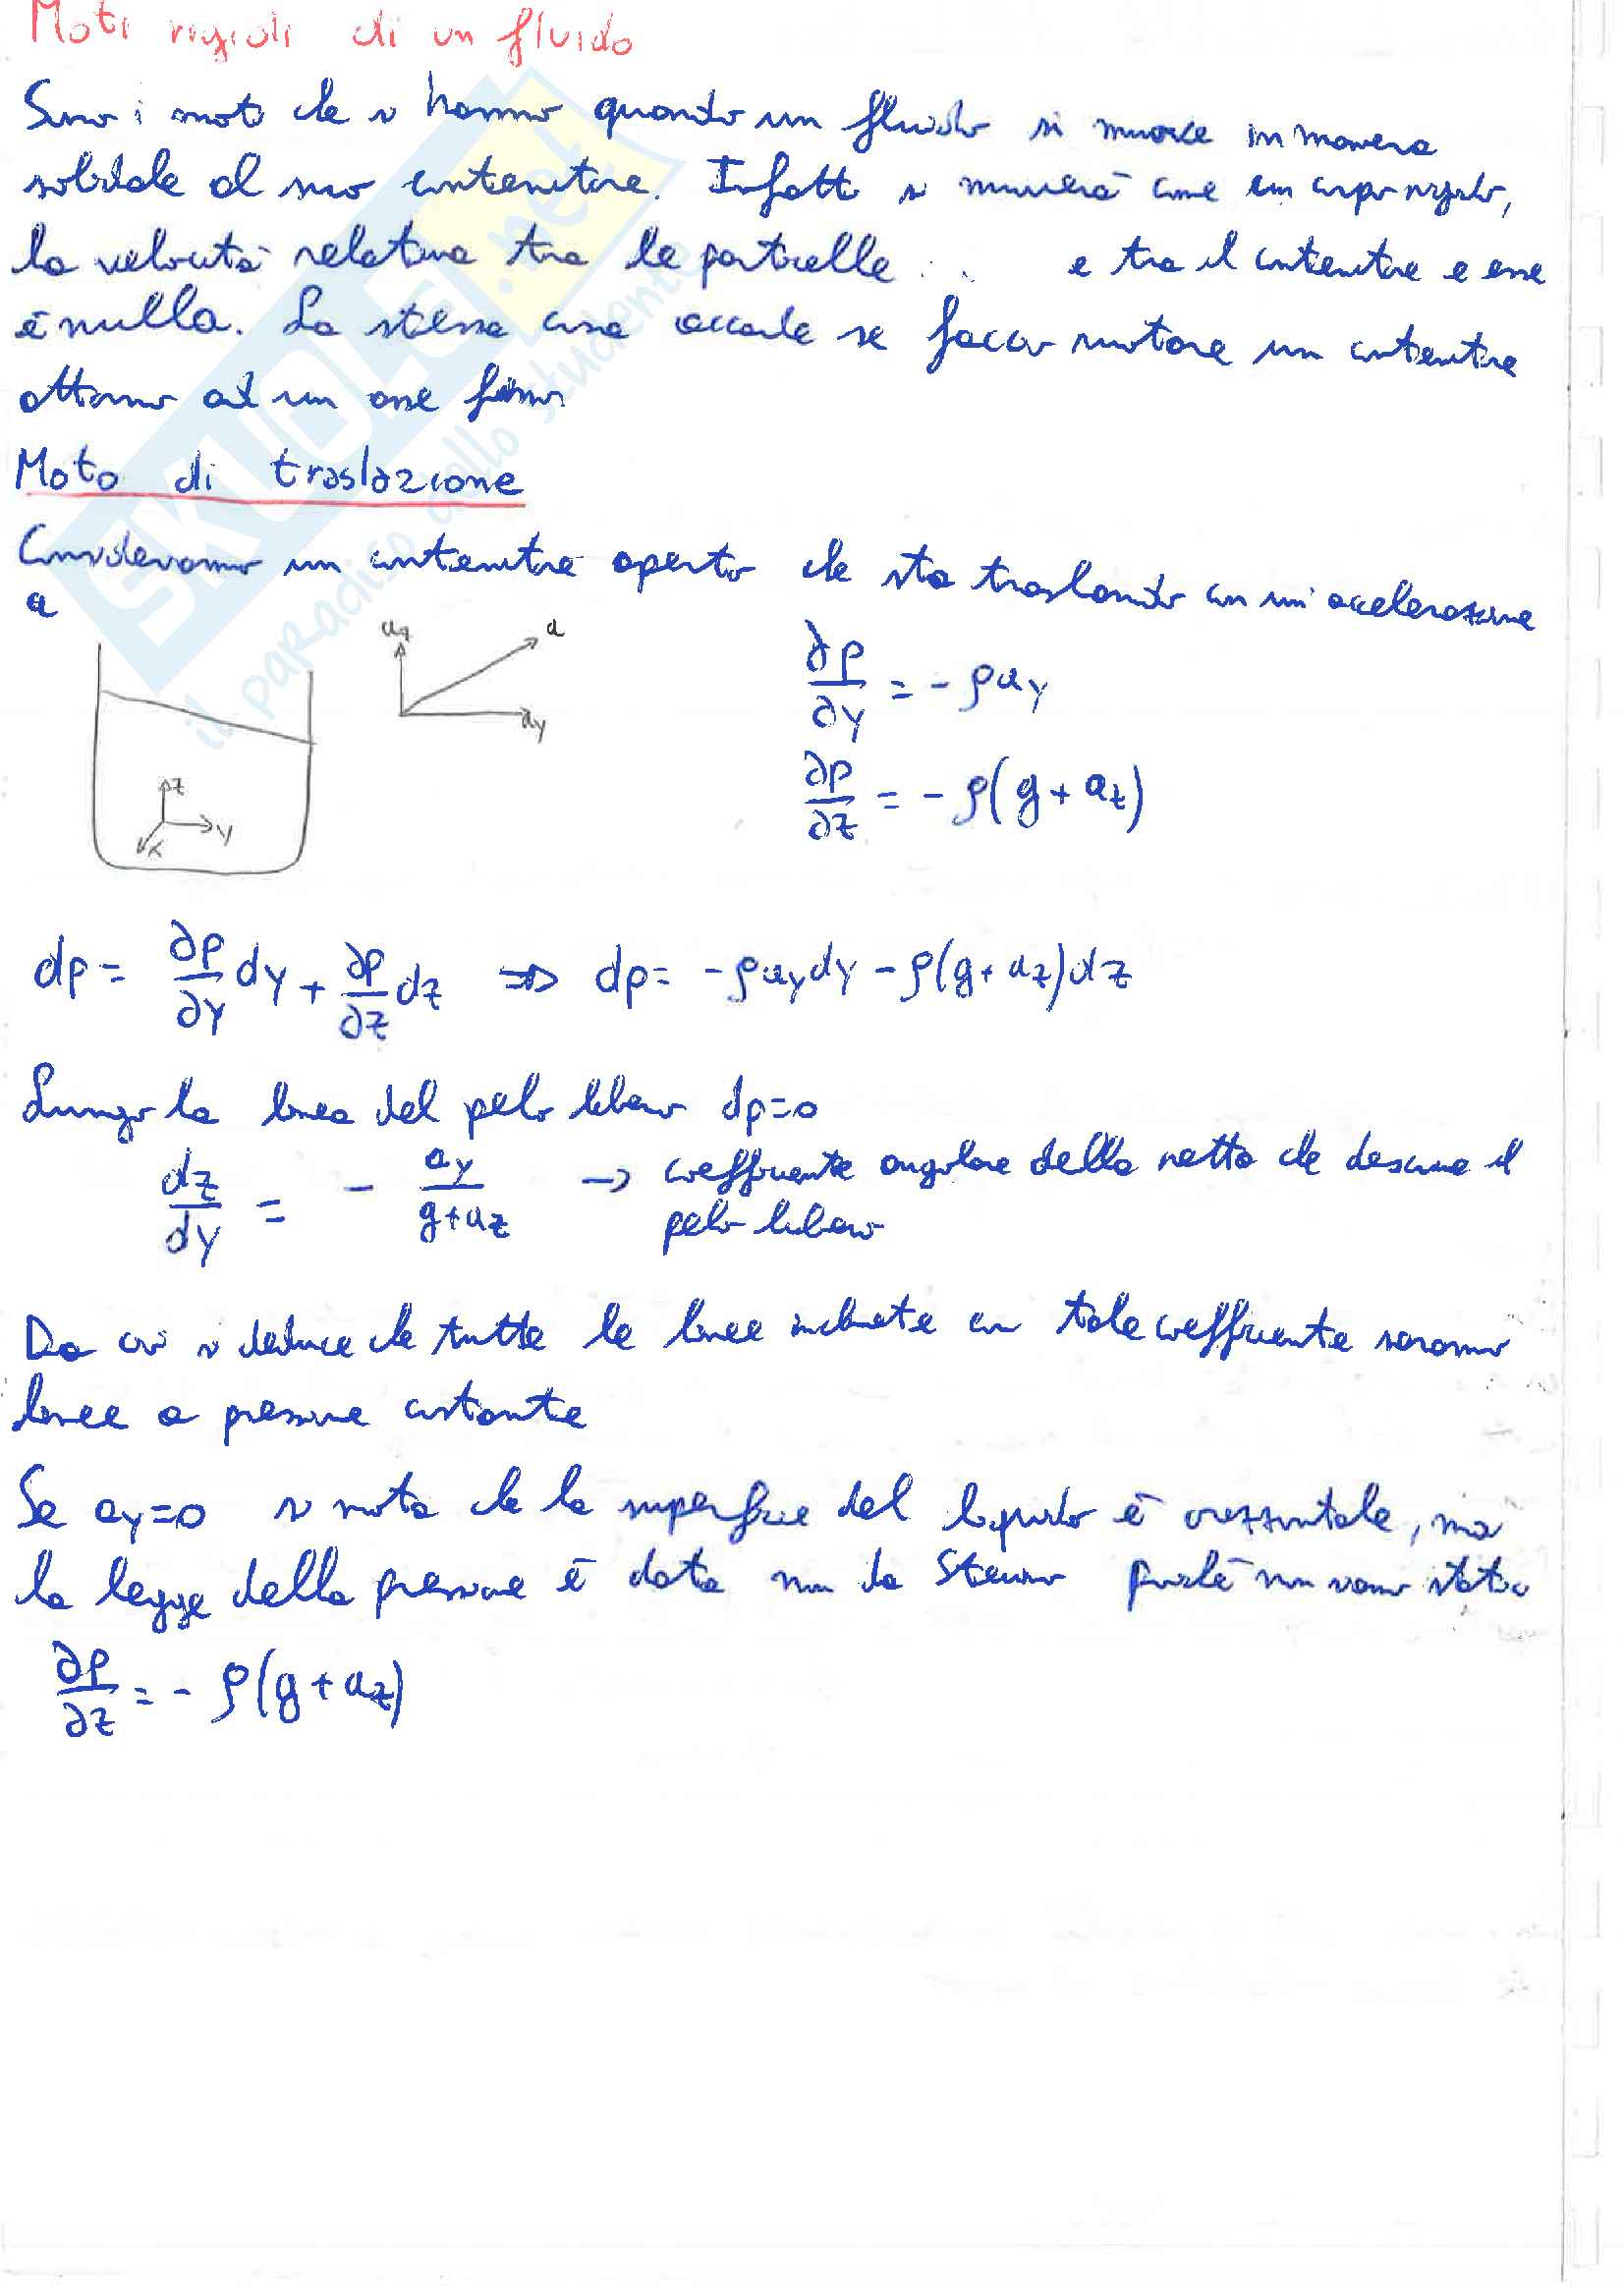 Moti rigidi di un fluido
Sono i moti che si hanno quando un fluido si muove in maniera
solidale al suo contenitore. Infatti si muoverà come un corpo rigido,
la velocità relativa tra le particelle e tra il contenitore e esse
è nulla. La stessa cosa accade se faccio ruotare un contenitore
attorno ad un asse fisso
Moto di traslazione
Consideriamo un contenitore aperto che sta traslando con un'accelerazione
a
az a
ay
z
y
x
∂p/∂y = -ρay
∂p/∂z = -ρ(g+az)
dp = ∂p/∂y dy + ∂p/∂z dz => dp = -ρaydy - ρ(g+az)dz
Lungo la linea del pelo libero dp=0
dz/dy = - ay/(g+az) → coefficiente angolare della retta che descrive il
pelo libero
Da cui si deduce che tutte le linee inclinate con tale coefficiente saranno
linee a pressione costante
Se ay=0 si nota che la superficie del liquido è orizzontale, ma
la legge della pressione è data non da Stevino perché non siamo statici
∂p/∂z = -ρ(g+az)
SKUOLA.net
il paradiso dello studente